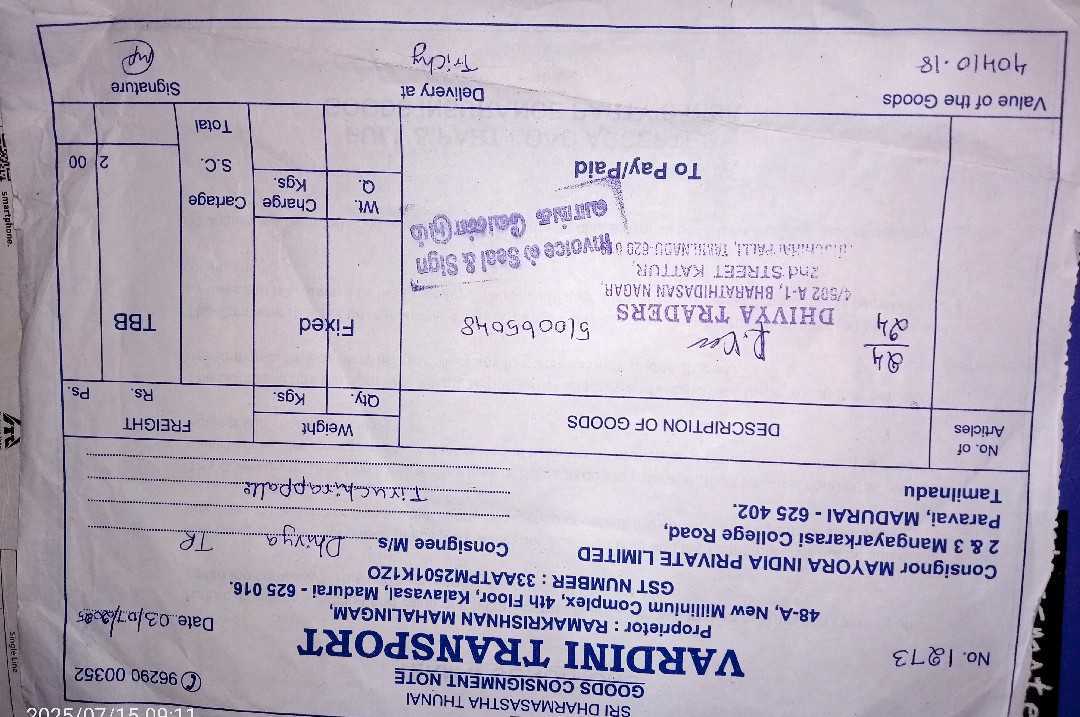 SRI DHARMASASTHA THUNAI
GOODS CONSIGNMENT NOTE
96290 00352
No. 1273
VARDINI TRANSPORT
Proprietor : RAMAKRISHNAN MAHALINGAM,
Date 03/07/2025
48-A, New Millinium Complex, 4th Floor, Kalavasal, Madurai - 625 016.
GST NUMBER : 33AATPM2501K1ZO
Consignor MAYORA INDIA PRIVATE LIMITED
2 & 3 Mangayarkarasi College Road,
Paravai, MADURAI - 625 402.
Tamilnadu
Consignee M/s Dhivya TR
Tiruchirappalli
No. of Articles
DESCRIPTION OF GOODS
Weight
Qty. Kgs.
FREIGHT
Rs. Ps.
24
24
510065048
Fixed
TBB
DHIVYA TRADERS
4/502 A-1, BHARATHIDASAN NAGAR,
2nd STREET KATTUR,
TAMILNADU-620
Invoice ல் Seal & Sign
வாங்க வேண்டும்
Wt. Q.
Charge Kgs.
Cartage
S.C.
2 00
Total
To Pay/Paid
Value of the Goods
40410.18
Delivery at
Trichy
Signature
2025/07/15 09:11
smartphone.
Single Line